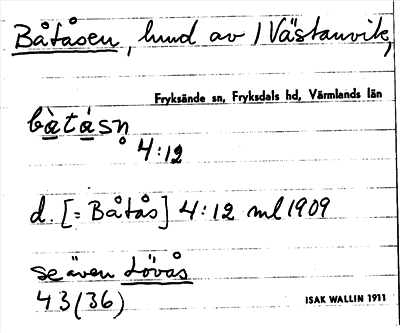 Båtåsen, hmd av / Västanvik,
Fryksände sn, Fryksdals hd, Värmlands län
bàtásn̥
4:12
d. [= Båtås] 4:12 ml 1909
se även Lövås
43 (36)
ISAK WALLIN 1911